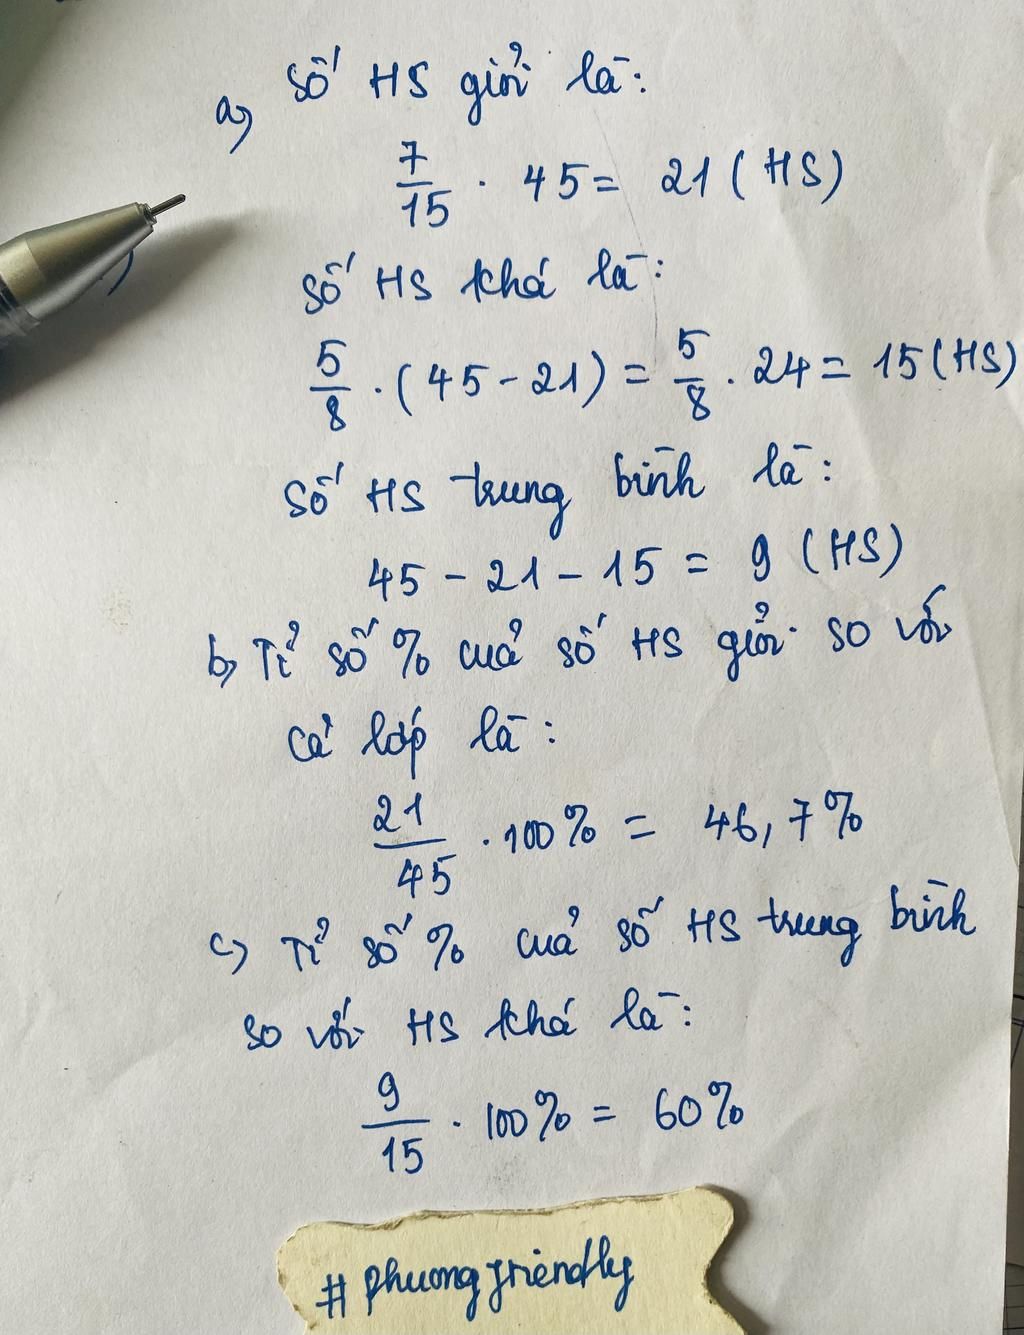 a, Số HS giỏi là:
7/15 . 45 = 21 (HS)
Số HS khá là:
5/8 . (45 - 21) = 5/8 . 24 = 15 (HS)
Số HS trung bình là:
45 - 21 - 15 = 9 (HS)
b, Tỉ số % của số HS giỏi so với
cả lớp là:
21/45 . 100% = 46,7%
c, Tỉ số % của số HS trung bình
so với HS khá là:
9/15 . 100% = 60%
# phuongfriendly